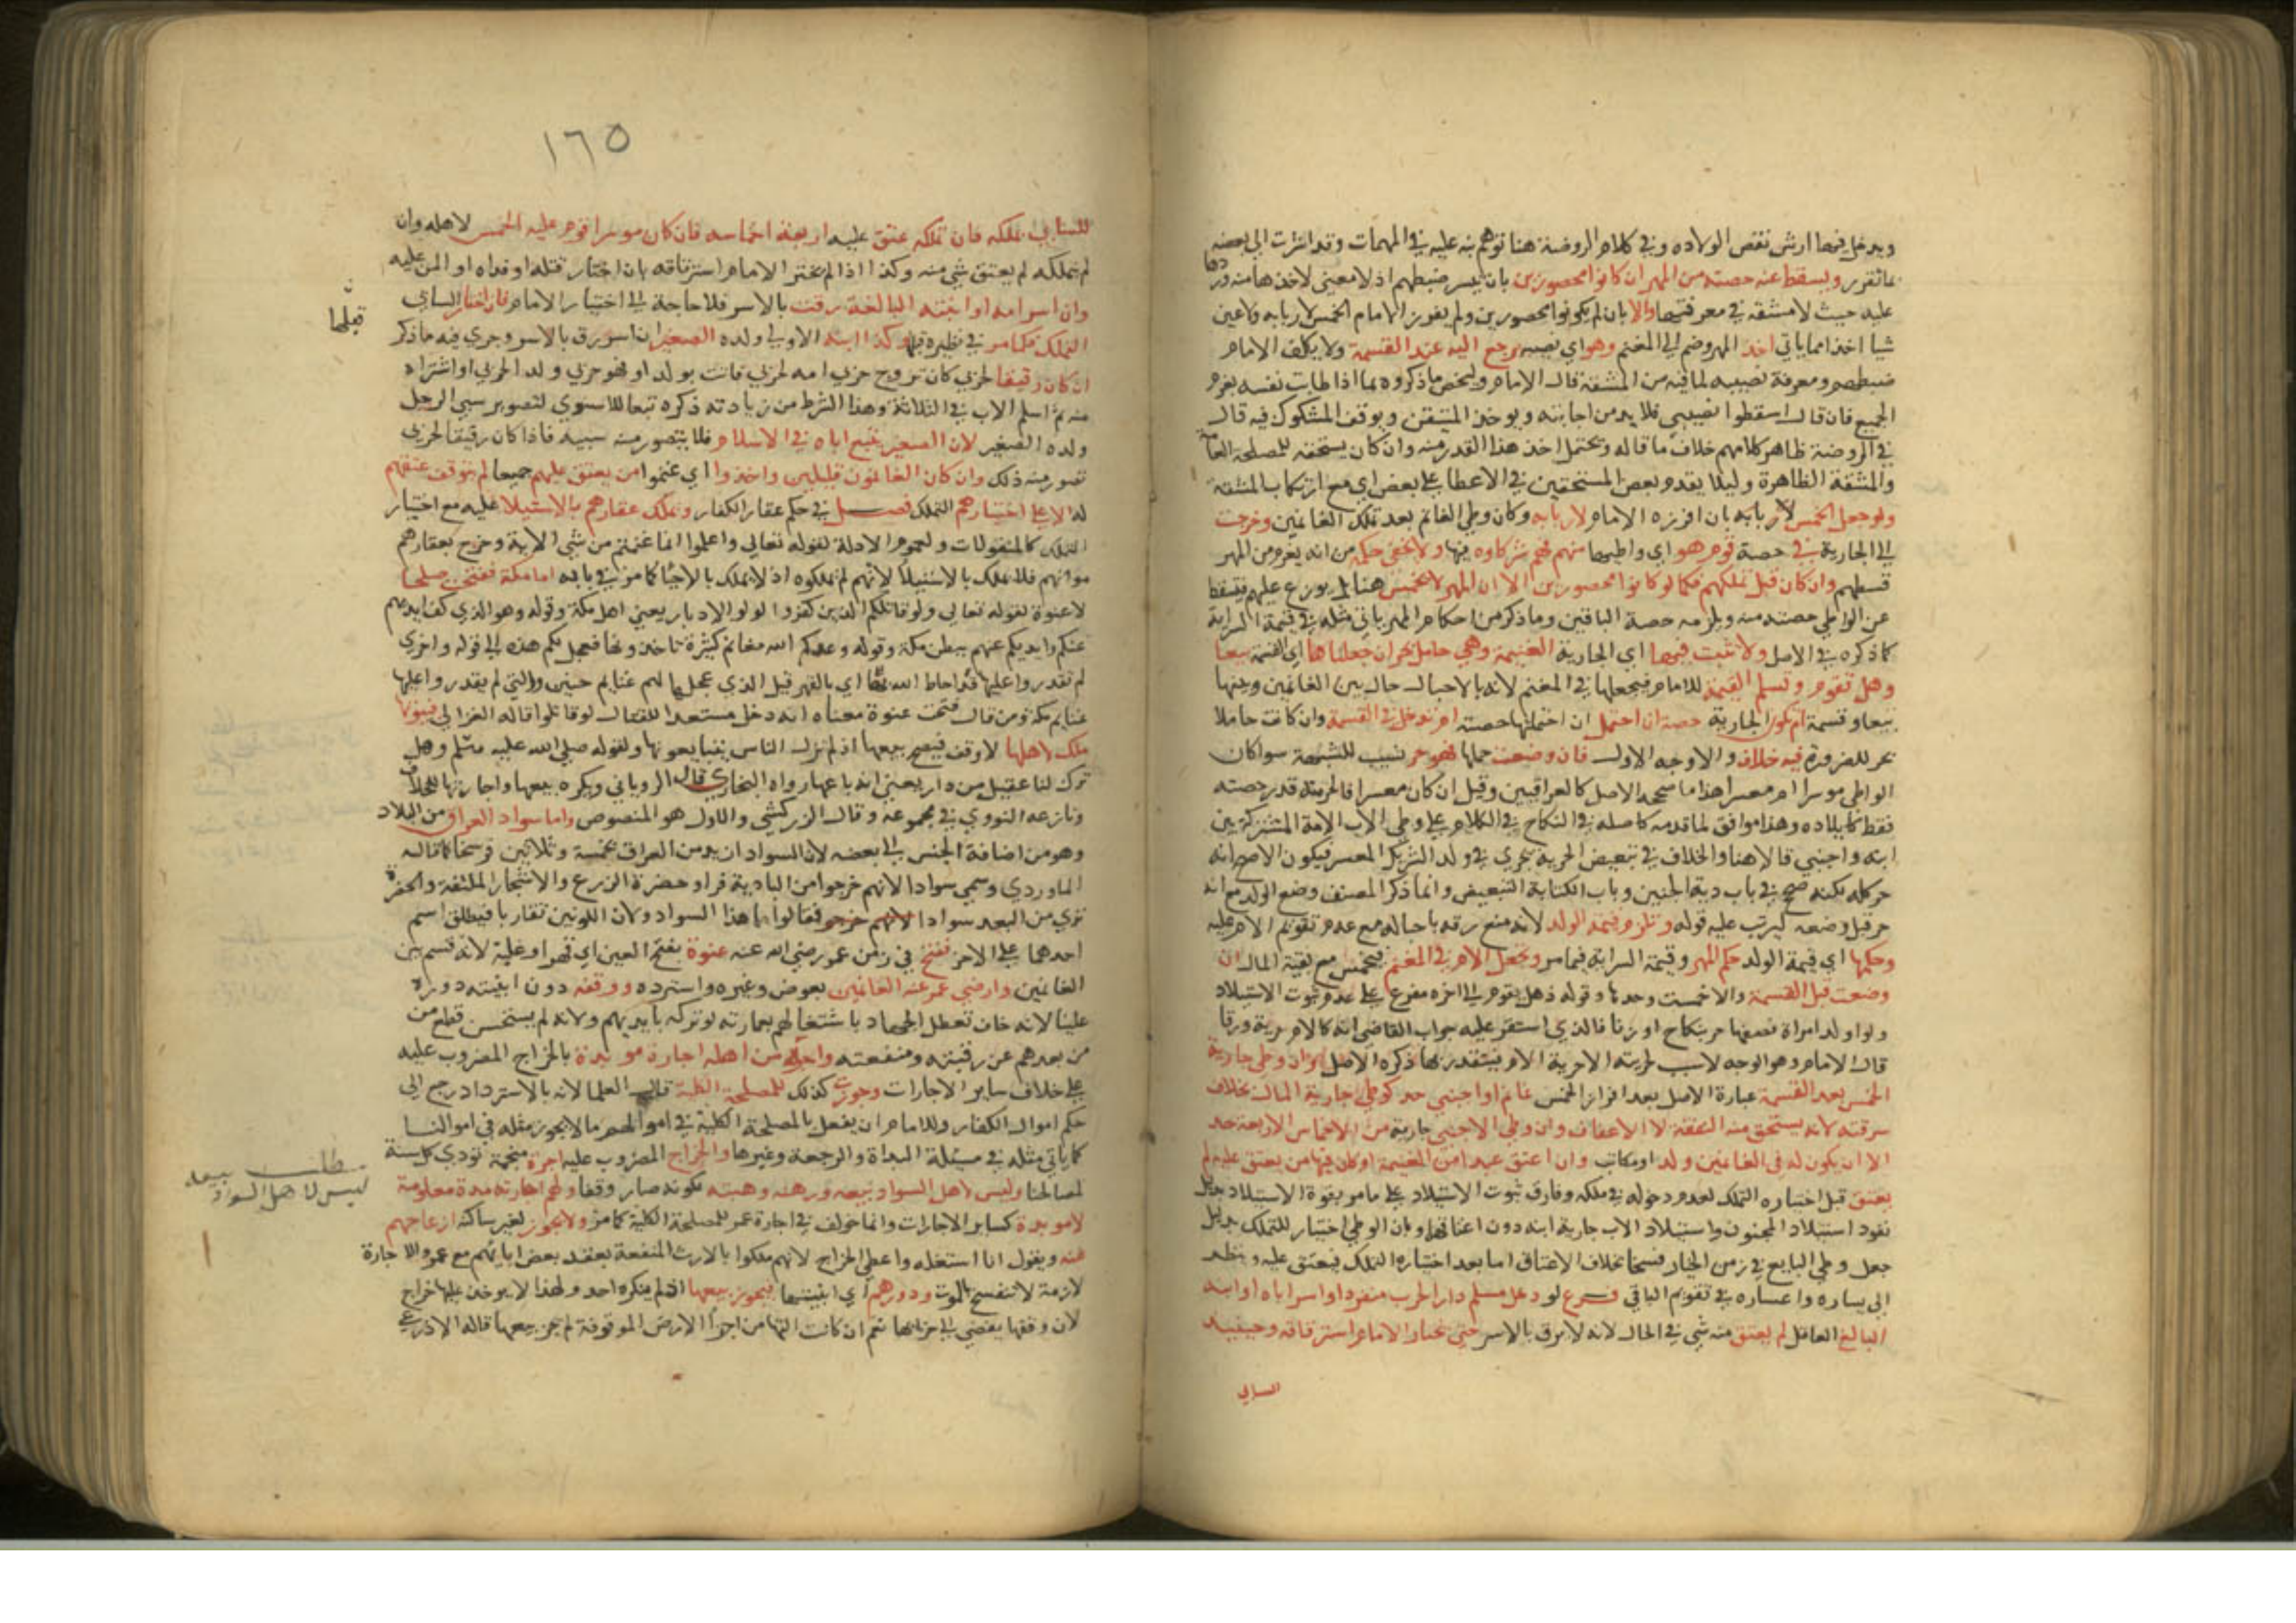 ويدخل فيها ارش نقص الولاده وفي كلام الروضة هنا توهم نبه عليه في المهمات وقد اشرت الى بعضه
بما تقرر ويسقط عنه حصته من المهر ان كانوا محصورين بان يسر ضبطهم اذ لا معنى لاخذها منه وردها
عليه حيث لا مشقة في معرفتها والا بان لم يكونوا محصورين ولم يفرز الامام الخمس لاربابه ولا عين
شيا اخذا مما ياتي اخذ المهر وضم الى المغنم وهو اي نصيبه يرجع اليه عند القسمة ولا يكلف الامام
ضبطهم ومعرفة نصيبه لما فيه من المشقة قال الامام وليخص ما ذكروه بما اذا طابت نفسه بغرم
الجميع فان قال اسقطوا نصيبي فلا بد من اجابته ويوخذ المتيقن ويوقف المشكوك فيه قال
في الروضة ظاهر كلامهم خلاف ما قاله ويحتمل اخذ هذا القدر منه وان كان يستحقه للمصلحة العامة
والمشقة الظاهرة وليلا يقدم بعض المستحقين في الاعطا على بعض اي مع ارتكاب المشقة
ولو جعل الخمس لاربابه بان افرزه الامام لاربابه وكان وطي الغانم بعد تملك الغانمين وخرجت
الى الجارية في حصة قوم هو اي واطيها منهم فهم شركاوه فيها ولا يخفى حكمه من انه يغرم من المهر
قسطهم وان كان قبل تملكهم فكما لو كانوا محصورين الا ان المهر لا يخمس هنا بل يوزع عليهم فيسقط
عن الواطي حصته منه ويلزمه حصة الباقين وما ذكر من احكام المهر ياتي مثله في قيمة السراية
كما ذكره في الاصل ولا تثبت قيمها اي الجارية الغنيمة وهي حامل بحر ان جعلناها اي القسمة بيعا
وهل تقوم وتسلم القيمة للامام فيجعلها في المغنم لانه بالاحبال حال بين الغانمين وبينها
بيعا وقسمة ام تكون الجارية حصة ان احتمل ان احتملتها حصته ام تدخل في القسمة وان كانت حاملا
بحر للضرورة فيه خلاف والاوجه الاول فان وضعت حملها فهو حر نسيب للشبهة سوا كان
الواطي موسرا ام معسرا هذا ما صححه الاصل كالعراقيين وقيل ان كان معسرا فالحرية قدر حصته
فقط كايلاده وهذا موافق لما قدمه كاصله في النكاح في الكلام على وطي الاب الامة المشتركة بين
ابنه واجنبي قالا هنا والخلاف في تبعيض الحرية يجري في ولد الشريك المعسر فيكون الاصح انه
حر كله لكنه صحح في باب دية الجنين وباب الكتابة التبعيض وانما ذكر المصنف وضع الولد مع انه
حر قبل وضعه ليرتب عليه قوله وتلزم قيمة الولد لانه منع رقه باحباله مع عدم تقويم الام عليه
وحكمها اي قيمة الولد حكم المهر وقيمة السراية فيما مر وتجعل الام في المغنم فتخمس مع بقية المال ان
وضعت قبل القسمة والا خمست وحدها وقوله ذهل يقوم الى اخره مفرع على عدم ثبوت الاستيلاد
ولو اولد امراة نصفها حر بنكاح او زنا فالذي استقر عليه جواب القاضي انه كالام حرية ورقا
قال الامام وهو الوجه لا سبب لحريته الا حرية الام فيتقدر بها ذكره الاصل وان وطي جارية
الخمس بعد القسمة عبارة الاصل بعد افراز الخمس غانم او اجنبي حد كوطي جارية المال بخلاف
سرقته لانه يستحق منه النفقة لا الاعفاف وان وطي الاجنبي جارية من الاخماس الاربعة حد
الا ان يكون له في الغانمين ولد او مكاتب وان اعتق عبدا من الغنيمة او كان فيها من يعتق عليه لم
يعتق قبل اختياره التملك لعدم دخوله في ملكه وفارق ثبوت الاستيلاد على ما مر بقوة الاستيلاد بدليل
نفوذ استيلاد المجنون واستيلاد الاب جارية ابنه دون اعتاقهما وبان الوطي اختيار للتملك بدليل
جعل وطي البايع في زمن الخيار فسخا بخلاف الاعتاق اما بعد اختياره التملك فيعتق عليه وينظر
الى يساره واعساره في تقويم الباقي فرع لو دخل مسلم دار الحرب منفردا واسر اباه او ابنه
البالغ العاقل لم يعتق منه شي في الحال لانه لا يرق بالاسر حتى يختار الامام استرقاقه وحينيذ
السابي
١٦٥
للسابي تملكه فان تملكه عتق عليه اربعة اخماسه فان كان موسرا قوم عليه الخمس لاهله وان
لم يتملكه لم يعتق شي منه وكذا اذا لم يختر الامام استرقاقه بان اختار قتله او فداه او المن عليه
وان اسر امه او ابنته البالغة رقت بالاسر فلا حاجة الى اختيار الامام فان اختار السابي
التملك فكما مر في نظيره قبلها وكذا ابنه الاولى ولده الصغير ان اسر رق بالاسر وجرى فيه ما ذكر
ان كان رقيقا لحربي كان تزوج حربي امه لحربي فاتت بولد او فهو حربي ولد الحربي او اشتراه
منه ثم اسلم الاب في الثلاثة وهذا الشرط من زيادته ذكره تبعا للاسنوي لتصوير سبي الرجل
ولده الصغير لان الصغير يتبع اباه في الاسلام فلا يتصور منه سبيه فاذا كان رقيقا لحربي
تصور منه ذلك وان كان الغانمون قليلين واخذوا اي غنموا من يعتق عليهم جميعا لم يتوقف عتقهم
له الا على اختيارهم التملك فصل في حكم عقار الكفار وتملك عقارهم بالاستيلا عليه مع اختيار
التملك كالمنقولات ولعموم الادلة لقوله تعالى واعلموا انما غنمتم من شي الاية وخرج بعقارهم
مواتهم فلا تملك بالاستيلا لانهم لم يملكوه اذ لا يملك بالاحيا كما مر في بابه اما مكة ففتحت صلحا
لا عنوة لقوله تعالى ولو قاتلكم الذين كفروا لولوا الادبار يعني اهل مكة وقوله وهو الذي كف ايديهم
عنكم وايديكم عنهم ببطن مكة وقوله وعدكم الله مغانم كثيرة تاخذونها فعجل لكم هذه الى قوله واخرى
لم تقدروا عليها قد احاط الله بها اي بالقهر قيل الذي عجل لهم غنايم حنين والتي لم يقدروا عليها
غنايم مكة ومن قال فتحت عنوة معناه انه دخل مستعدا للقتال لو قاتلوا قاله الغزالي فبيوتها
ملك لاهلها لا وقف فيصح بيعها اذ لم تزل الناس يتبايعونها ولقوله صلى الله عليه وسلم وهل
ترك لنا عقيل من دار يعني انه باعها رواه البخاري قال الروياني ويكره بيعها واجارتها للخلاف
ونازعه النووي في مجموعه وقال الزركشي والاول هو المنصوص واما سواد العراق من البلاد
وهو من اضافة الجنس الى بعضه لان السواد ازيد من العراق بخمسة وثلاثين فرسخا كما قاله
الماوردي وسمي سوادا لانهم خرجوا من البادية فراو خضرة الزرع والاشجار الملتفة والخضرة
ترى من البعد سوادا فقالوا ما هذا السواد ولان اللونين تقاربا فيطلق اسم
احدهما على الاخر ففتح في زمن عمر رضي الله عنه عنوة بفتح العين اي قهرا وغلبة لانه قسم بين
الغانمين وارضى عمر عنه الغانمين بعوض وغيره واسترده ووقفه دون ابنيته دوره
علينا لانه خاف تعطل الجهاد باشتغالهم بعمارته لو تركه بايديهم ولانه لم يستحسن قطع من
من بعدهم عن رقبته ومنفعته واجره من اهله اجارة موبدة بالخراج المضروب عليه
على خلاف ساير الاجارات وجوزت كذلك للمصلحة الكلية قال العلما لانه بالاسترداد رجع الى
حكم اموال الكفار وللامام ان يفعل بالمصلحة الكلية في اموالهم ما لا يجوز مثله في اموالنا
كما ياتي مثله في مسئلة البداة والرجعة وغيرها والخراج المضروب عليه اجرة منجمة تودى كل سنة
لمصالحنا وليس لاهل السواد بيعه ورهنه وهبته لكونه صار وقفا ولهم اجارته مدة معلومة
لا موبدة كساير الاجارات وانما خولف في اجارة عمر للمصلحة الكلية كما مر ولا يجوز لغير ساكنه ازعاجهم
عنه ويقول انا استغله واعطي الخراج لانهم ملكوا بالارث المنفعة بعقد بعض ابايهم مع عمر والاجارة
لازمة لا تنفسخ بالموت ودورهم اي ابنيتها فيجوز بيعها اذ لم ينكره احد ولهذا لا يوخذ عليها خراج
لان وقفها يفضي الى خرابها نعم ان كانت التها من اجزا الارض الموقوفة لم يجز بيعها قاله الاذرعي
قبلها
مطلب
ليس لاهل السواد بيعه